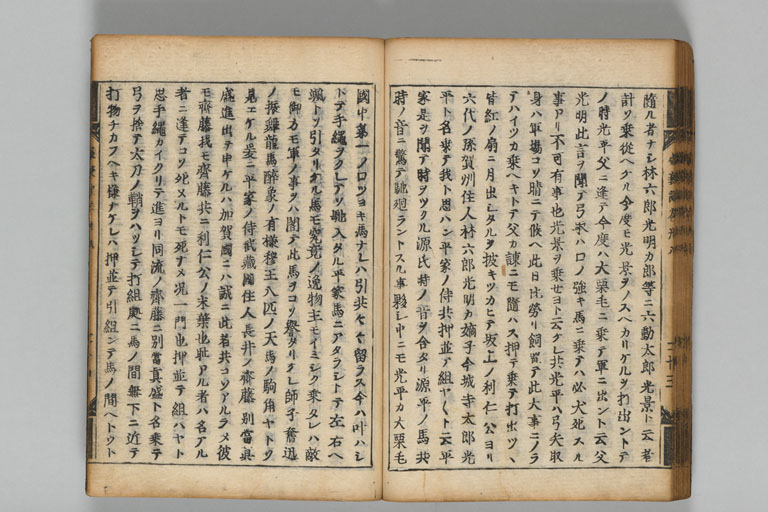 隨ル者ナシ林六郎光明カ郎等ニ六動太郎光景ト云者
計ソ乗從ヘケル今度モ光景ヲノスヘカリケルヲ打出ントテ
ノ時光平父ニ逢テ今度ハ大栗毛ニ乗テ軍ニ出ント云父
光明此言ヲ聞テ弓ハロノ強キ馬ニ乗テハ必犬死スル
事アリ不可有事也光景ヲ乗セヨト云ケレ共光平ハ弓矢取
身ハ軍場コソ晴ニテ候ヘ此日比勞リ飼置テ此大事ニノラ
テハイツカ乗ヘキトテ父カ諫ニモ隨ハス押テ乗テ打出ツヽ
皆紅ノ扇ニ月出シタルヲ披キツカヒテ坂上ノ利仁公ヨリ
六代ノ孫賀州住人林六郎光明カ嫡子今城寺太郎光
平ト名乗テ我ト思ハン平家ノ侍共押並テ組ヤ〱ト云平
家是ヲ聞テ時ヲツクル源氏時ノ音ヲ合タリ源平ノ馬共
時ノ音ニ驚テ馳廻ラントスル事シ中ニモ光平カ大栗毛
國中第一ノロツヨキ馬ナレハ引共〱留ラス今ハ叶ハシ
トテ手繩ヲクレテソ馳入タル平家馬ニアタラシトテ左右ヘ
颯ト引タリケル馬モ究竟ノ逸物主モイミシク乗タレハ敵
モ御方モ軍ノ事ヲハ閣テ此馬ヲコソ譽タリケレ師子奮迅
ノ振舞龍馬醉象ノ有樣穆王八匹ノ天馬ノ駒角ヤトソ
見エケル爰ニ平家ノ侍武藏國住人長井ノ齋藤別當真
盛進出テ申ケルハ加賀國ニハ誠ニ此者共コソアルラメ彼
モ齋藤我モ齋藤共ニ利仁公ノ末葉也耻アル者ハ名アル
者ニ逢テコソ死メルトモ死ナメ况一門也押並テ組ハヤト
思手繩カイクリテ進ヨリ同流ノ齋藤ニ別當真盛ト名乗テ
弓ヲ捨テ太刀ノ鞘ヲハツシテ打組處ニ馬ノ間無下ニ近テ
打物チカフヘキ樣ナケレハ押並テ引組ンテ馬ノ間ヘトウト